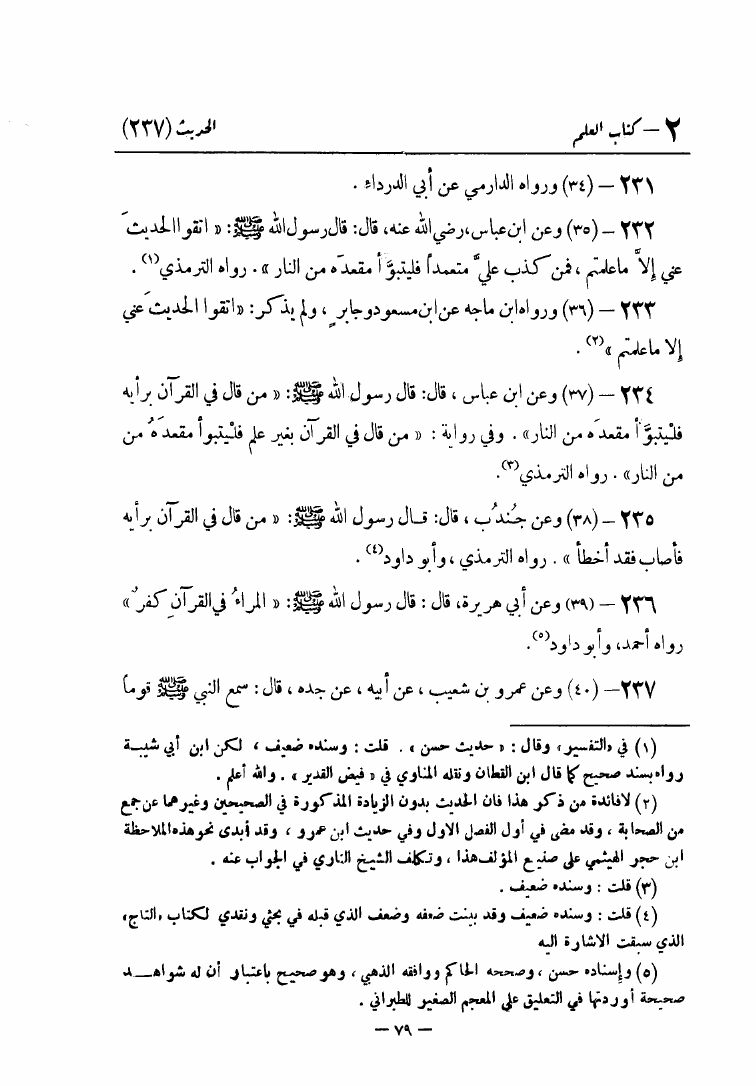 ٢ — كتاب العلم الحديث (٢٣٧)
٢٣١ — (٣٤) ورواه الدارمي عن أبي الدرداء .
٢٣٢ — (٣٥) وعن ابن عباس، رضي الله عنه، قال: قال رسول الله ﷺ: « اتقوا الحديثَ
عني إلاَّ ماعلمتم ، فمن كذب عليَّ متعمداً فليتبوَّأ مقعدَه من النار » . رواه الترمذي(١) .
٢٣٣ — (٣٦) ورواه ابن ماجه عن ابن مسعود وجابرٍ ، ولم يذكر: «اتقوا الحديثَ عني
إلا ماعلمتم »(٢) .
٢٣٤ — (٣٧) وعن ابن عباس ، قال: قال رسول الله ﷺ: « من قال في القرآن برأيه
فلْيتبوَّأ مقعدَه من النار» . وفي رواية : « من قال في القرآن بغير علم فلْيتبوأ مقعدَهُ من
من النار» . رواه الترمذي(٣).
٢٣٥ — (٣٨) وعن جُندُب ، قال: قـال رسول الله ﷺ: « من قال في القرآن برأيه
فأصاب فقد أخطأ » . رواه الترمذي ، وأبو داود(٤) .
٢٣٦ — (٣٩) وعن أبي هريرة، قال : قال رسول الله ﷺ: « المراءُ في القرآنِ كفرٌ »
رواه أحمد، وأبو داود(٥).
٢٣٧ — (٤٠) وعن عمرو بن شعيب ، عن أبيه ، عن جده ، قال : سمع النبي ﷺ قوماً
(١) في «التفسير» وقال : « حديث حسن » . قلت : وسنده ضعيف ، لكن ابن أبي شيبـة
رواه بسند صحيح كما قال ابن القطان ونقله المناوي في « فيض القدير » . والله أعلم .
(٢) لافائدة من ذكر هذا فان الحديث بدون الزيادة المذكورة في الصحيحين وغيرهما عن جمع
من الصحابة ، وقد مضى في أول الفصل الاول وفي حديث ابن عمرو ، وقد أبدى نحو هذه الملاحظة
ابن حجر الهيثمي على صنيع المؤلف هذا ، وتكلف الشيخ القاري في الجواب عنه .
(٣) قلت : وسنده ضعيف .
(٤) قلت : وسنده ضعيف وقد بينت ضعفه وضعف الذي قبله في بحثي ونقدي لكتاب «التاج»
الذي سبقت الاشارة اليه
(٥) وإسناده حسن ، وصححه الحاكم ووافقه الذهبي ، وهو صحيح باعتبار أن له شواهـــد
صحيحة أوردتها في التعليق على المعجم الصغير للطبراني .
— ٧٩ —